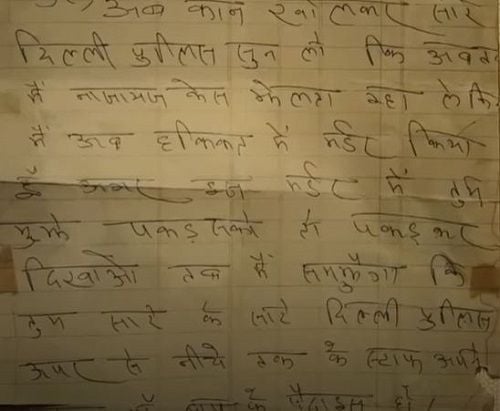 अब कान खोलकर सारे
दिल्ली पुलिस सुन लो कि अबतक
मैं नाजायज केस झेलता रहा लेकि
मैं अब हकिकत में मर्डर किया
हूँ अगर इस मर्डर में तुम
मुझे पकड़ सको तो पकड़कर
दिखाओ तब मैं समझुँगा कि
तुम सारे के सारे दिल्ली पुलिस
ऊपर से नीचे तक के स्टाफ अपने
के